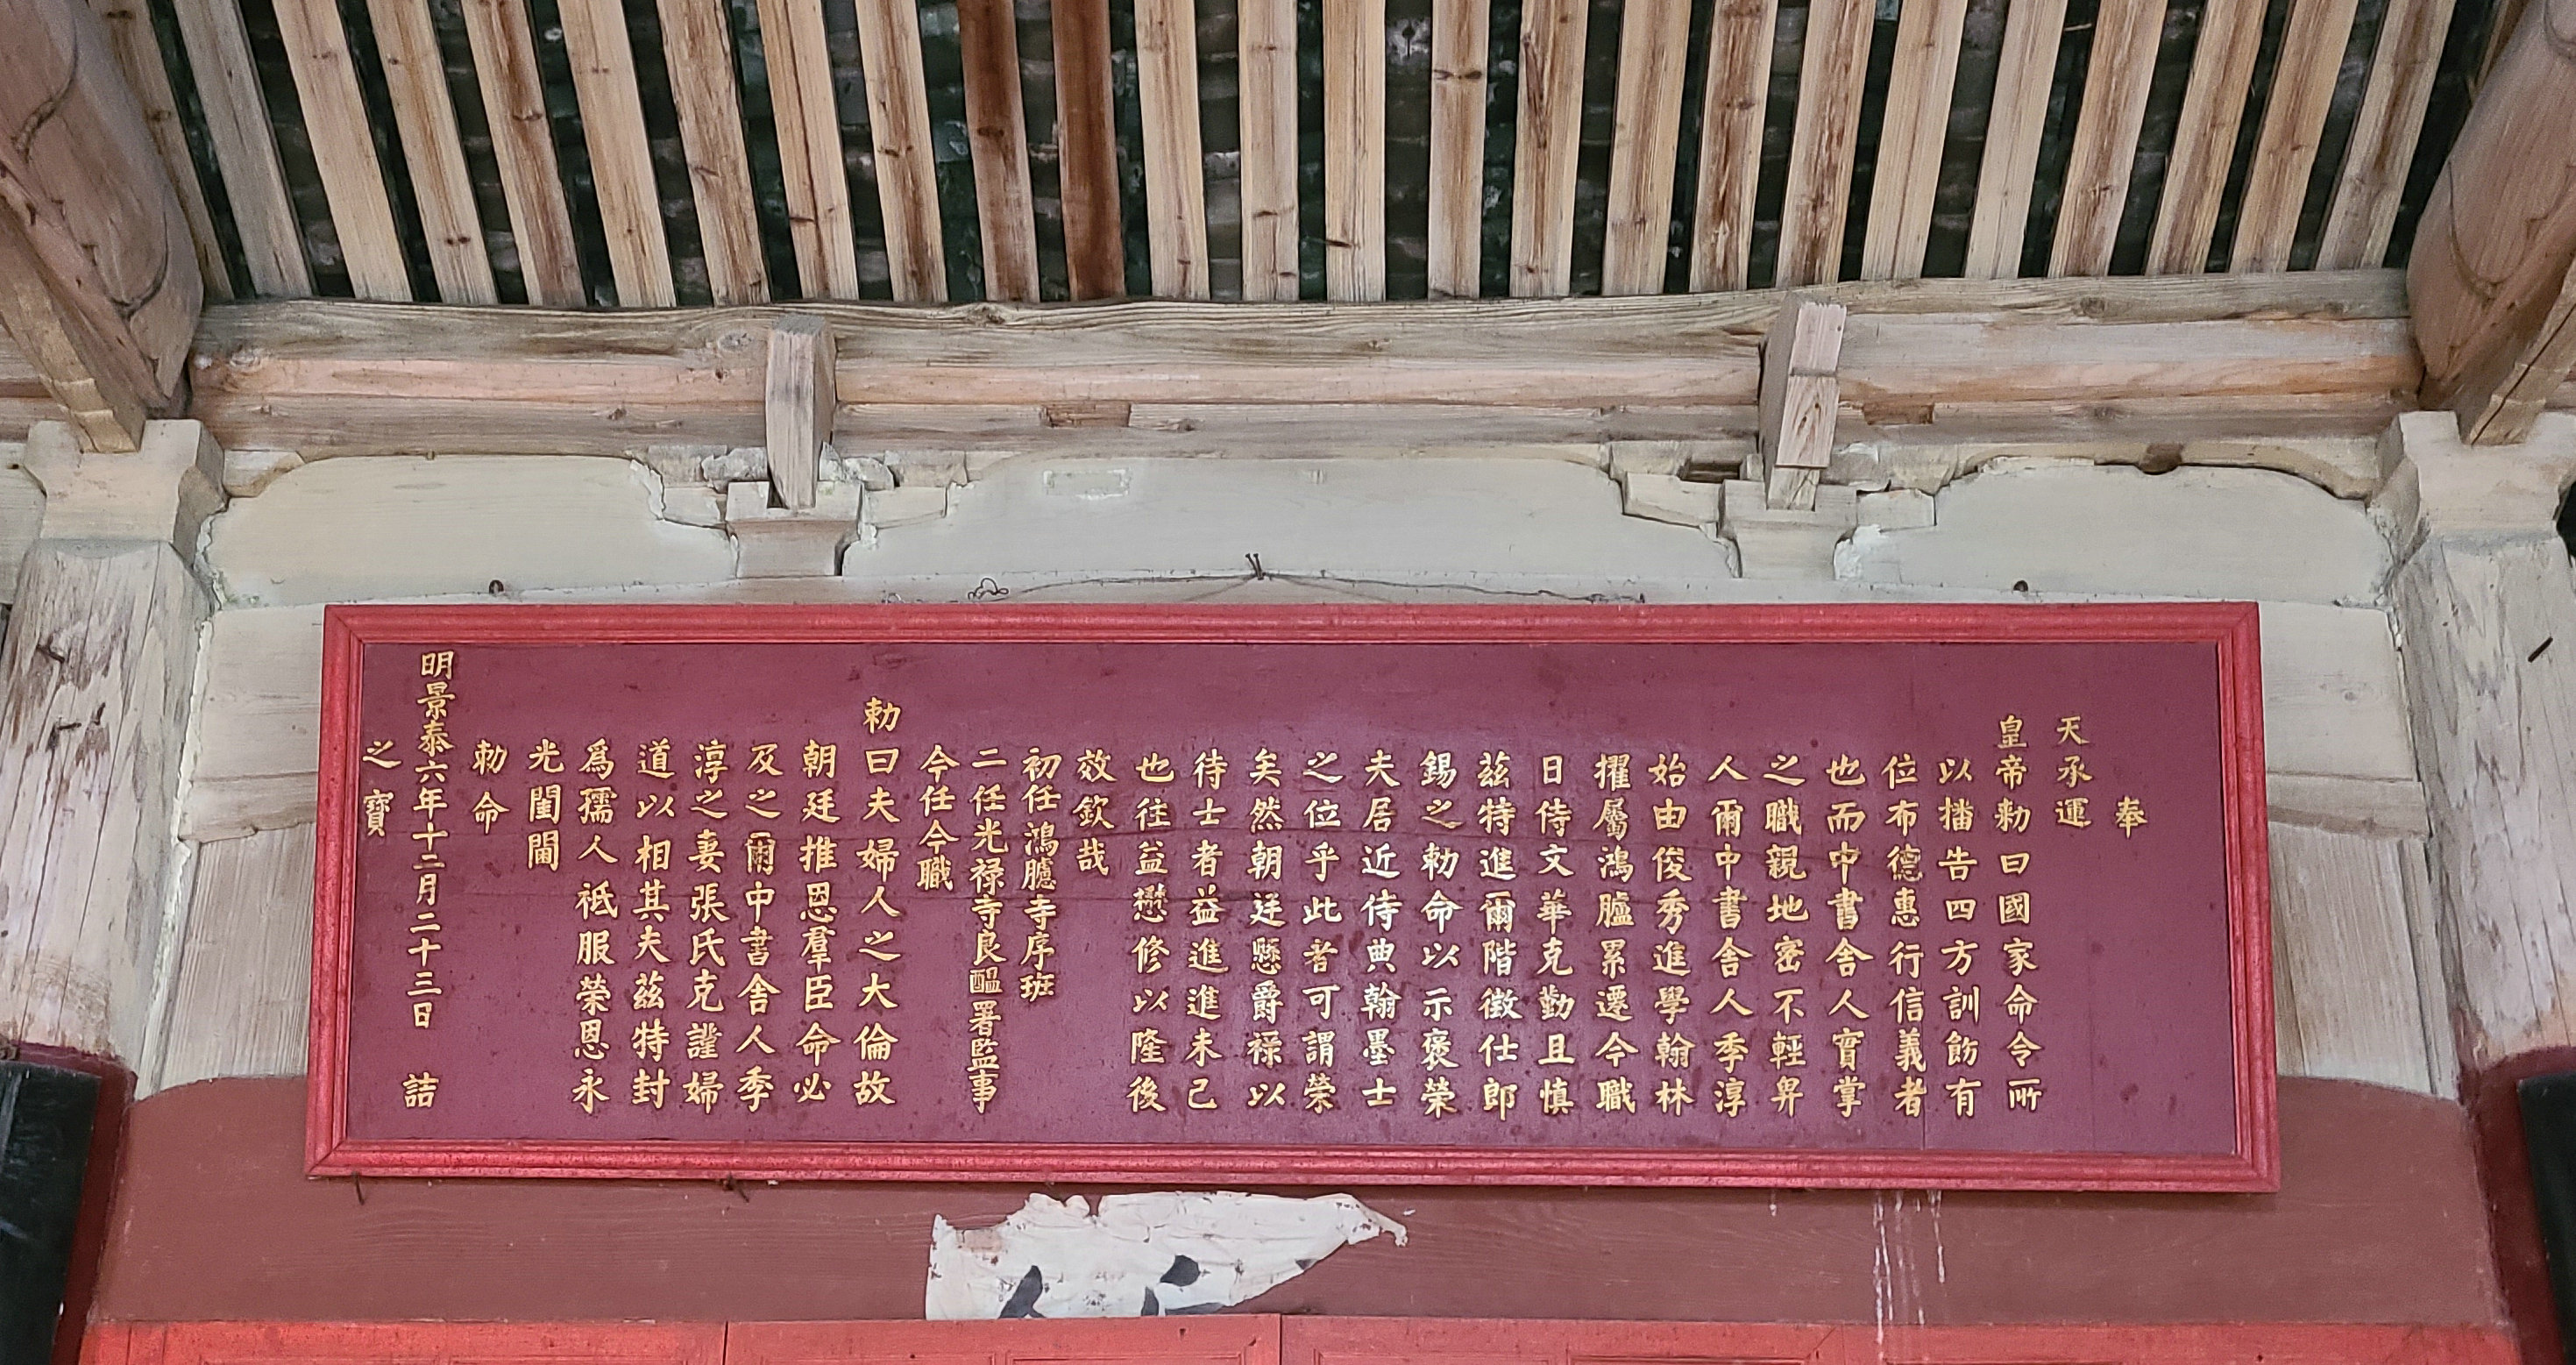 奉
天承運
皇帝勅曰國家命令所
以播告四方訓飭有
位布德惠行信義者
也而中書舍人實掌
之職親地密不輕畀
人爾中書舍人季淳
始由俊秀進學翰林
擢屬鴻臚累遷今職
日侍文華克勤且慎
茲特進爾階徵仕郎
錫之勅命以示褒榮
夫居近侍典翰墨士
之位乎此者可謂榮
矣然朝廷懸爵祿以
待士者益進進未已
也往益懋修以隆後
效欽哉
初任鴻臚寺序班
二任光祿寺良醞署監事
今任今職
勅曰夫婦人之大倫故
朝廷推恩羣臣命必
及之爾中書舍人季
淳之妻張氏克謹婦
道以相其夫茲特封
爲孺人祗服榮恩永
光閨閫
勅命
明景泰六年十二月二十三日 誥
之寶